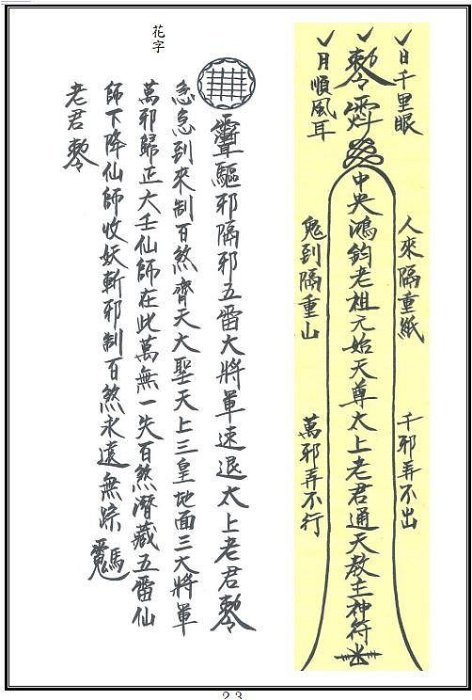 ✓日千里眼
✓敕令
✓月順風耳
中央鴻鈞老祖元始天尊太上老君通天教主神符
人來隔重紙
千邪弄不出
鬼到隔重山
萬邪弄不行
花字
驅邪隔邪五雷大將軍速退太上老君敕令
急急到來制百煞齊天大聖天上三皇地面三大將軍
萬邪歸正大壬仙師在此萬無一失百煞潛藏五雷仙
師下降仙師收妖斬邪制百煞永遠無踪
老君敕令
23